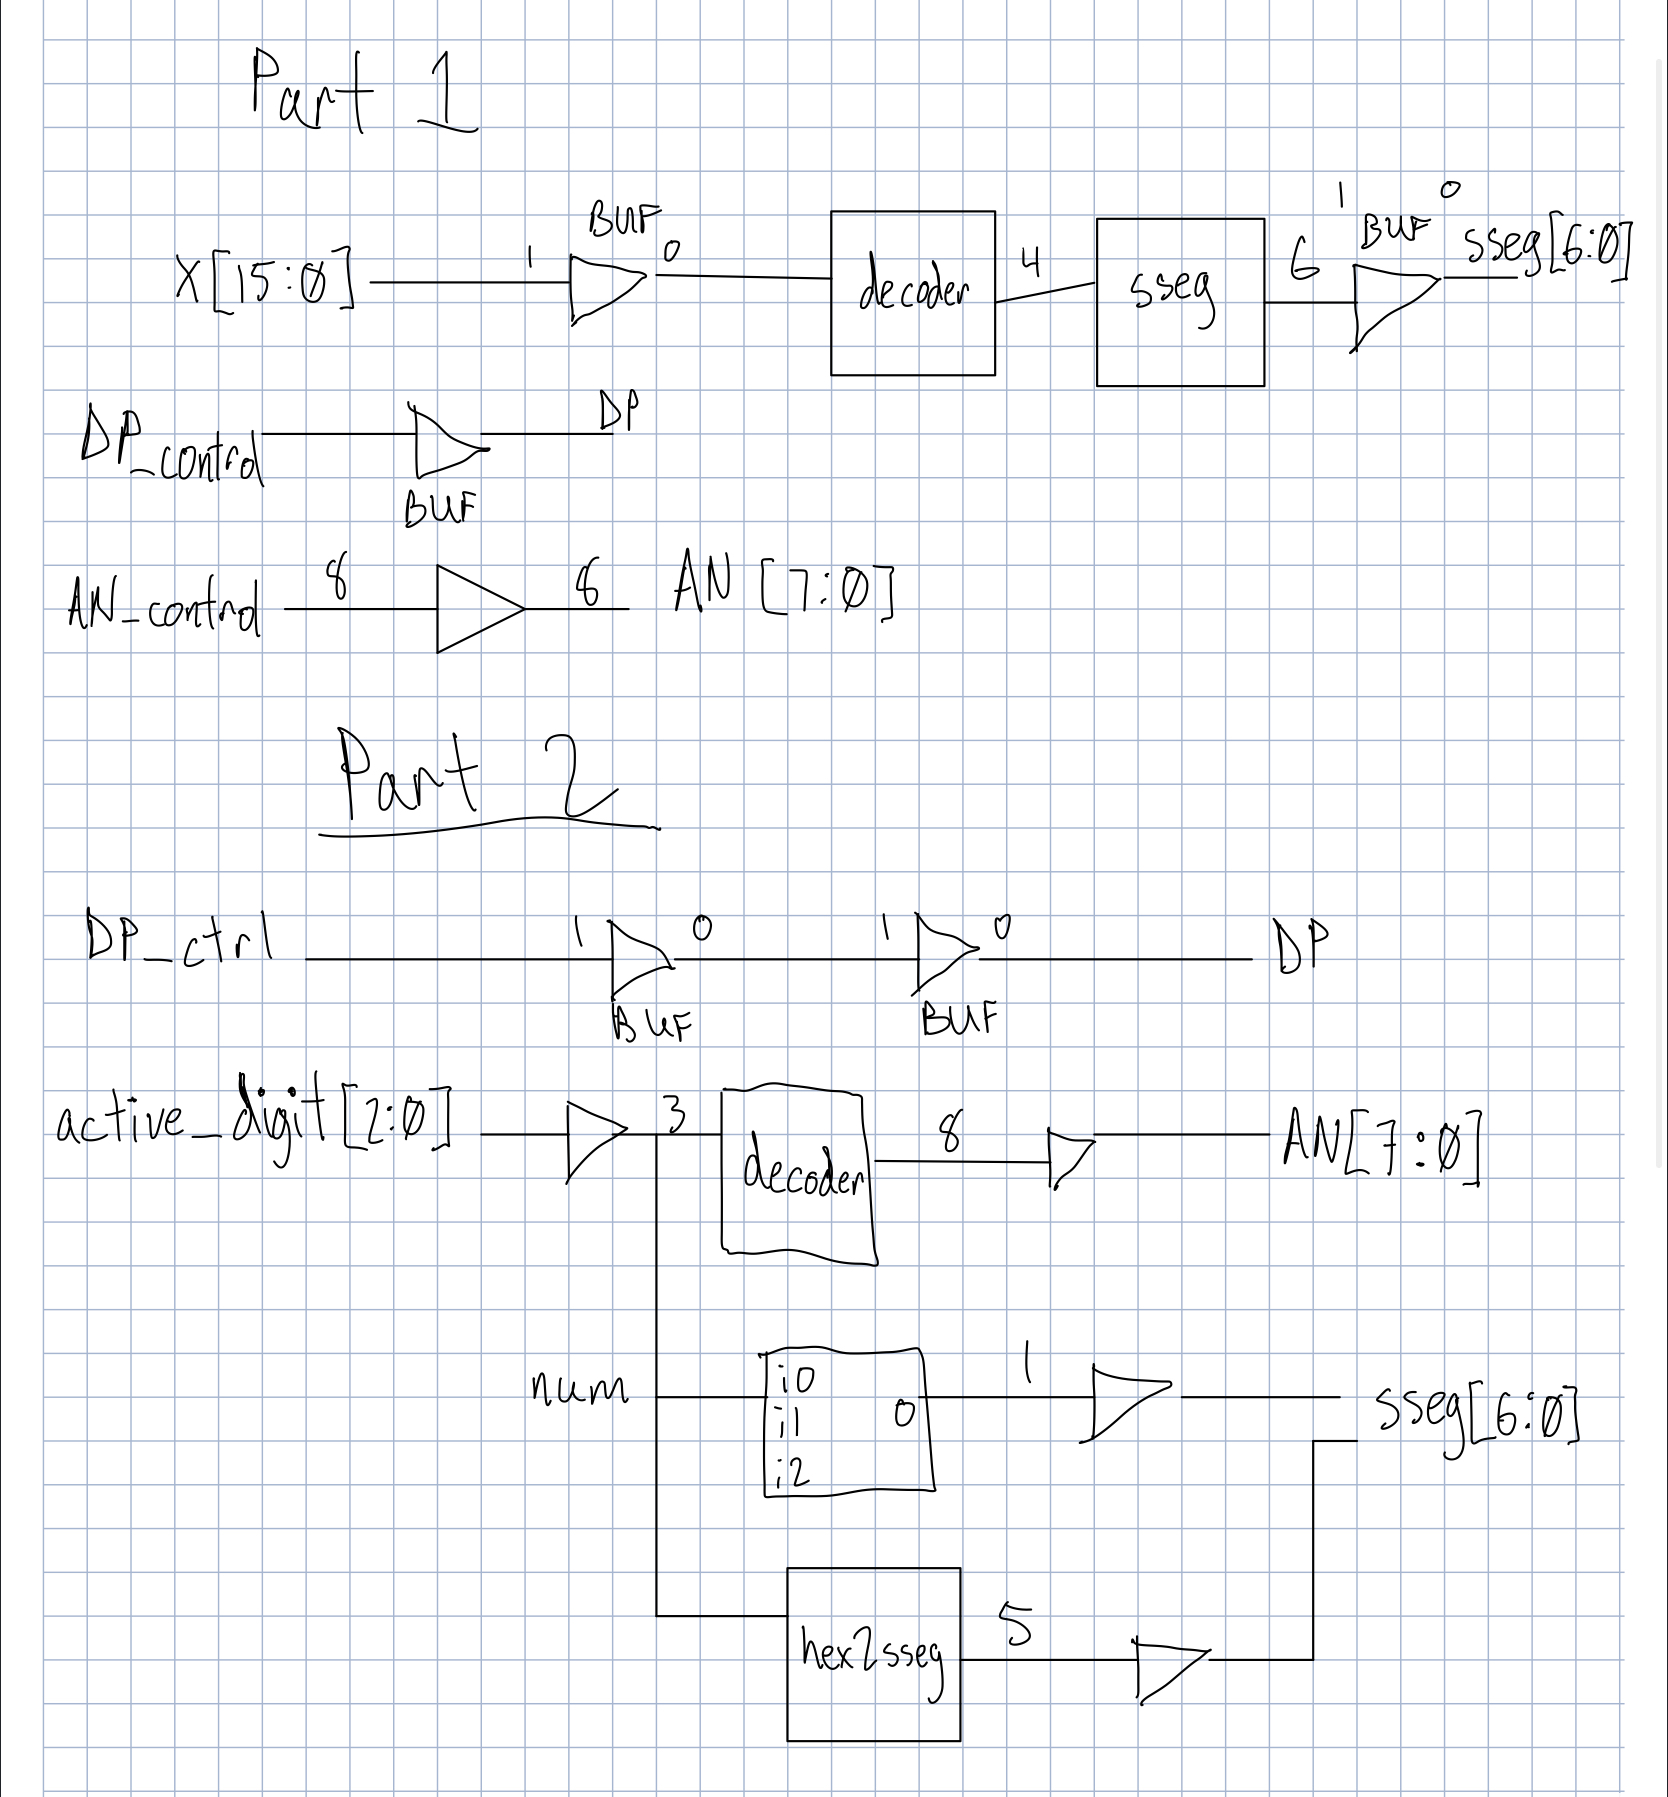 Part 1
BUF 1 BUF 0
X[15:0] 1 0 decoder 4 sseg 6 sseg[6:0]
DP_control BUF DP
AN_control 8 8 AN [7:0]
Part 2
DP_ctrl 1 BUF 0 1 BUF 0 DP
active_digit[2:0] 3 decoder 8 AN[7:0]
num i0 i1 i2 0 1 sseg[6:0]
hex2sseg 5